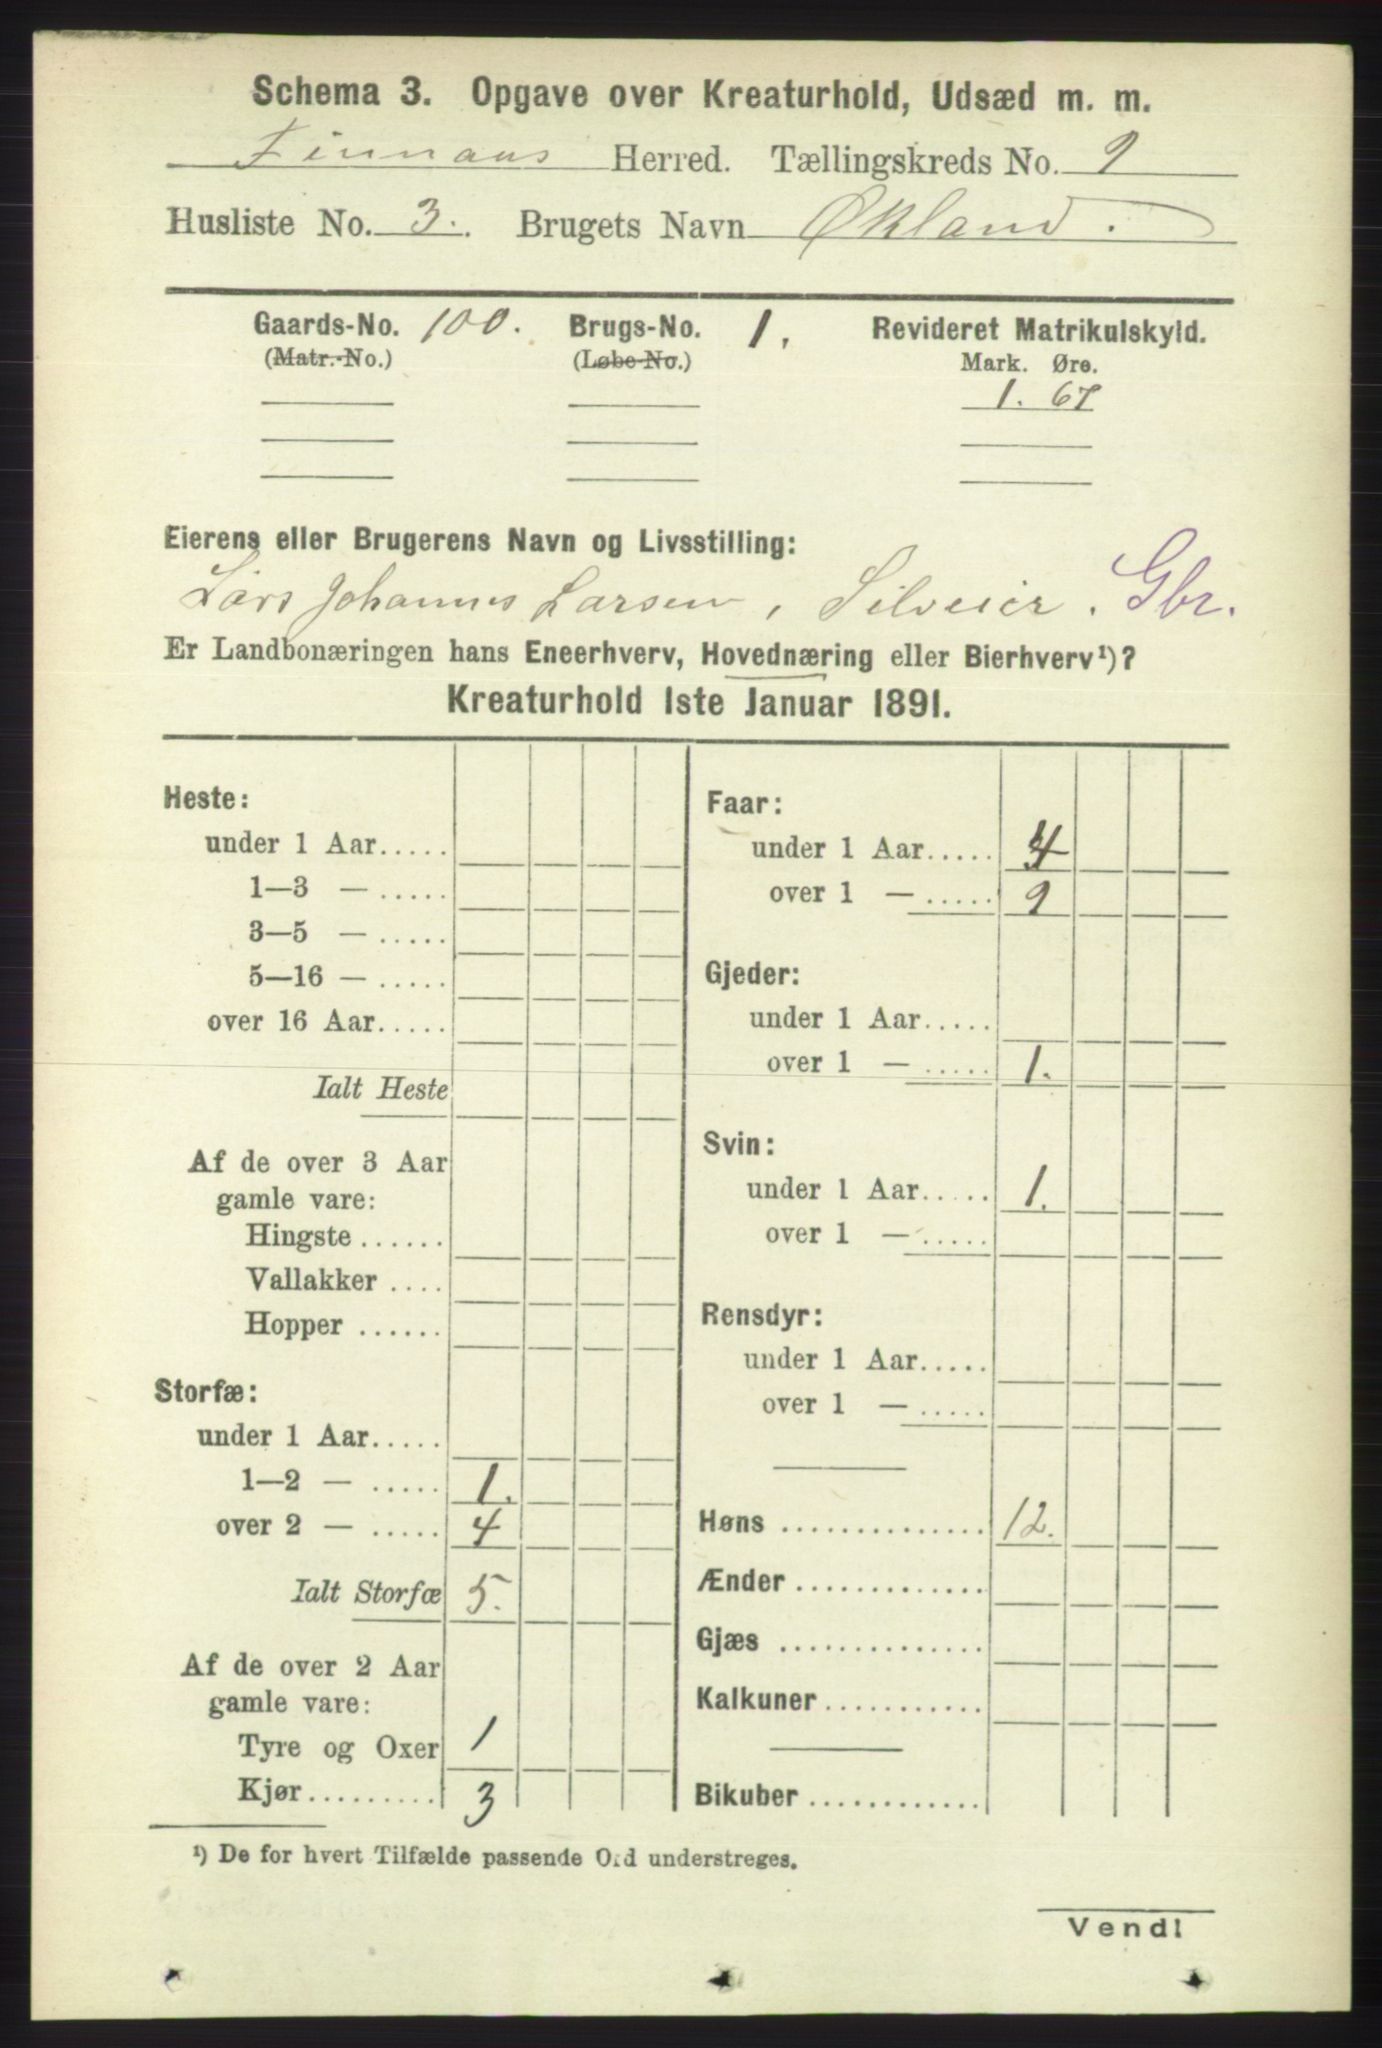 Schema 3. Opgave over Kreaturhold, Udsæd m. m.
Finnaas Herred. Tællingskreds No. 9
Husliste No. 3. Brugets Navn Økland.
Gaards-No. 100. Brugs-No. 1. Revideret Matrikulskyld.
(Matr.-No.) (Løbe-No.) Mark. Øre.
1. 67
Eierens eller Brugerens Navn og Livsstilling:
Lars Johannes Larsen, Selveier. Gbr.
Er Landbonæringen hans Eneerhverv, Hovednæring eller Bierhverv¹)?
Kreaturhold 1ste Januar 1891.
Heste:
under 1 Aar.....
1—3 — .....
3—5 — .....
5—16 — .....
over 16 Aar.....
Ialt Heste
Af de over 3 Aar
gamle vare:
Hingste ......
Vallakker ....
Hopper ......
Storfæ:
under 1 Aar.....
1—2 — ..... 1.
over 2 — ..... 4
Ialt Storfæ 5.
Af de over 2 Aar
gamle vare:
Tyre og Oxer 1
Kjør......... 3
Faar:
under 1 Aar..... 4
over 1 — ..... 9
Gjeder:
under 1 Aar.....
over 1 — ..... 1.
Svin:
under 1 Aar..... 1.
over 1 — .....
Rensdyr:
under 1 Aar.....
over 1 — .....
Høns .............. 12.
Ænder .............
Gjæs ..............
Kalkuner ...........
Bikuber ............
¹) De for hvert Tilfælde passende Ord understreges.
Vend!